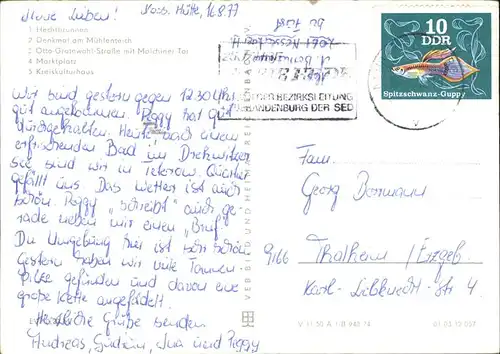 Meine Lieben!
16.8.77
1 Hechtbrunnen
2 Denkmal am Mühlenteich
3 Otto-Grotewohl-Straße mit Malchiner Tor
4 Marktplatz
5 Kreiskulturhaus
Wir sind gestern gegen 12.30 Uhr
gut angekommen. Peggy hat gut
durchgehalten. Heute nach einem
erfrischenden Bad im
See sind wir in Teterow. Quartier
gefällt uns. Das Wetter ist auch
schön. Peggy "schreibt" auch ge-
rade neben mir einen "Brief".
Die Umgebung hier ist sehr schön.
Gestern haben wir viele Tannen-
pilze gefunden und davon eine
große Kette angefädelt.
Herzliche Grüße senden
Andreas, und Peggy
10
DDR
Spitzschwanz-Guppy
DER BEZIRKSLEITUNG
BRANDENBURG DER SED
Fam.
Georg Dormann
9166 Thalheim / Erzgeb.
Karl-Liebknecht-Str 4
VEB BILD UND HEIMAT REICHENBACH
V 11 50 A 1/B 943/74
01 03 13 057